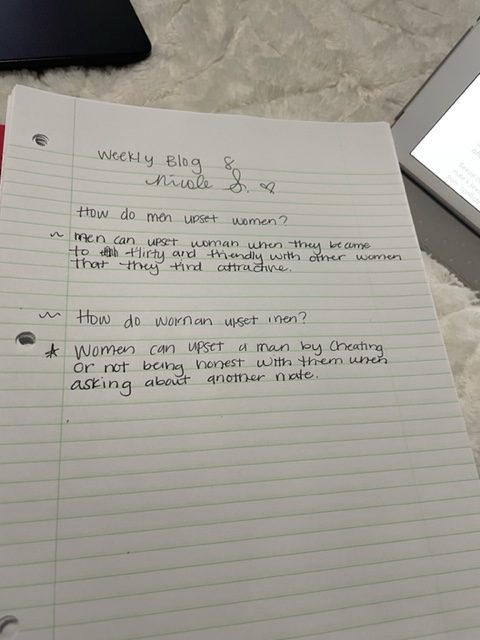 Weekly Blog 8
Nicole S. ♡
How do men upset women?
~ men can upset woman when they become
to flirty and friendly with other women
that they find attractive.
~ How do woman upset men?
* Women can upset a man by cheating
or not being honest with them when
asking about another mate.